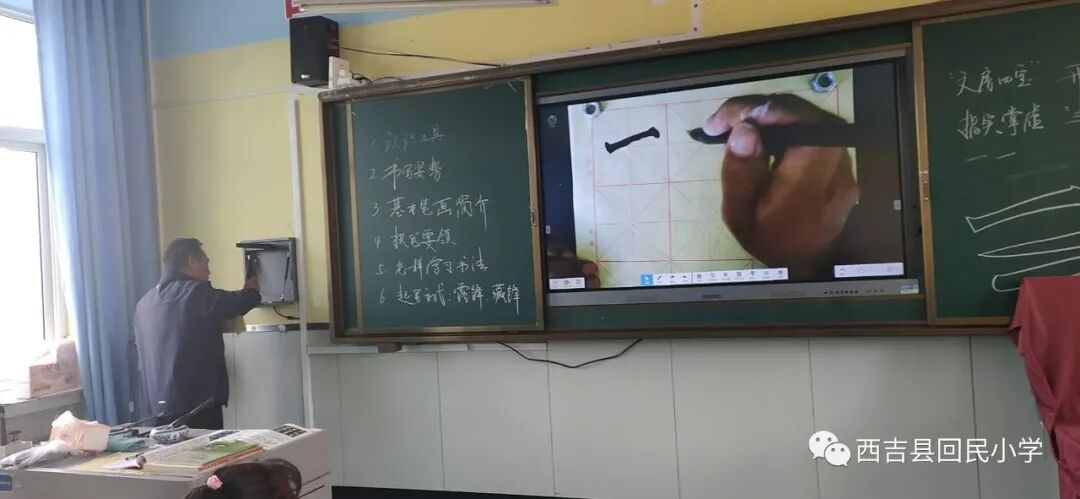 1. 认识工具
2. 书写姿势
3. 基本笔画简介
4. 执笔要领
5. 怎样学习书法
6. 起笔方式：露锋 藏锋
"文房四宝"
指实掌虚
一 一
西吉县回民小学